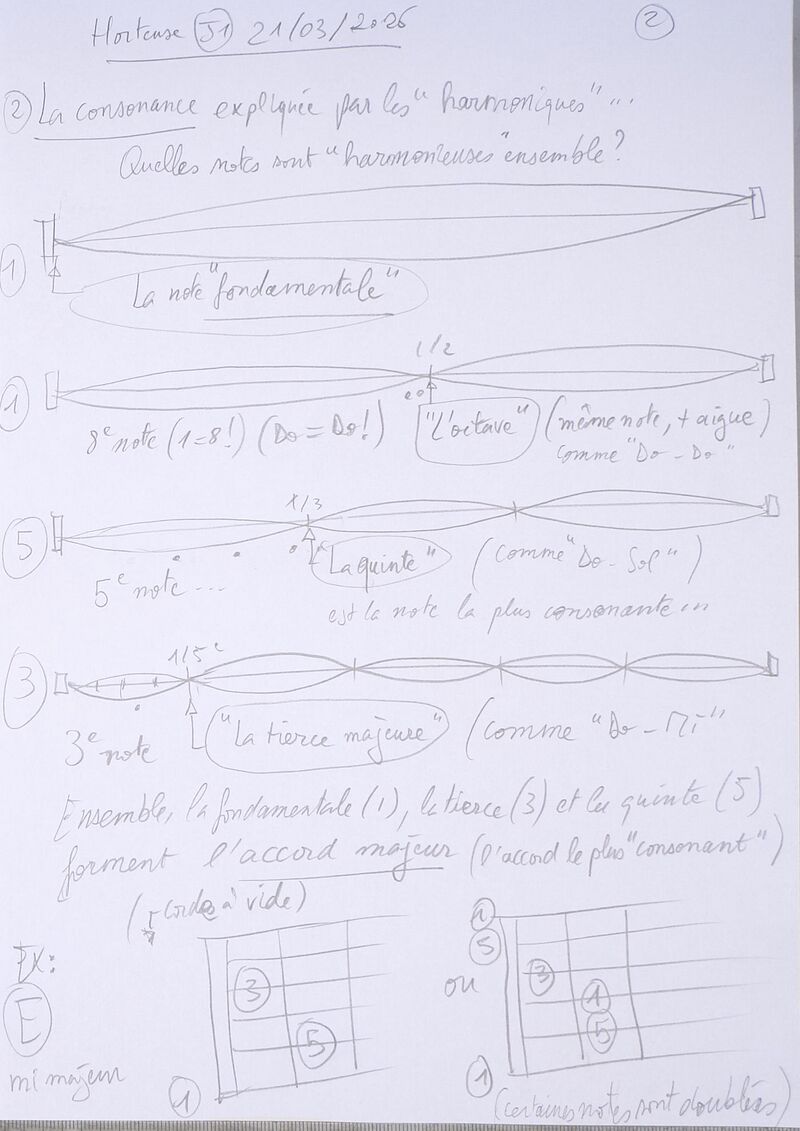 Hortense J1 21/03/2026
2
② La consonance expliquée par les "harmoniques"...
Quelles notes sont "harmonieuses" ensemble?
1
La note "fondamentale"
1/2
1
8e note (1=8!) (Do = Do!) "L'octave" (même note, + aigue)
comme "Do - Do"
1/3
5
"La quinte" (comme "Do - Sol")
5e note ...
est la note la plus consonante...
1/5e
3
3e note "La tierce majeure" (comme "Do - Mi"
Ensemble, la fondamentale (1), la tierce (3) et la quinte (5)
forment l'accord majeur (l'accord le plus "consonant")
(cordes à vide)
1
5
Ex:
3
ou
3
1
E
5
5
mi majeur
1
1
(certaines notes sont doublées)